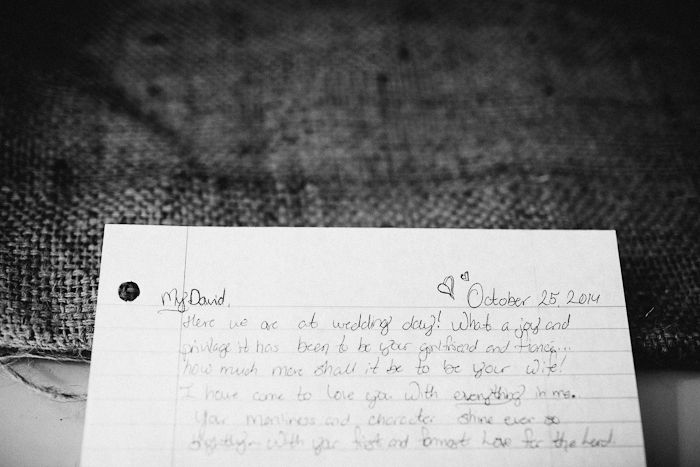 My David,
October 25, 2014
Here we are at wedding day! What a joy and
privlage it has been to be your girlfriend and fiancé...
how much more shall it be to be your wife!
I have come to love you with everything in me.
Your manliness and character shine ever so
with your first and formost Love for the Lord.